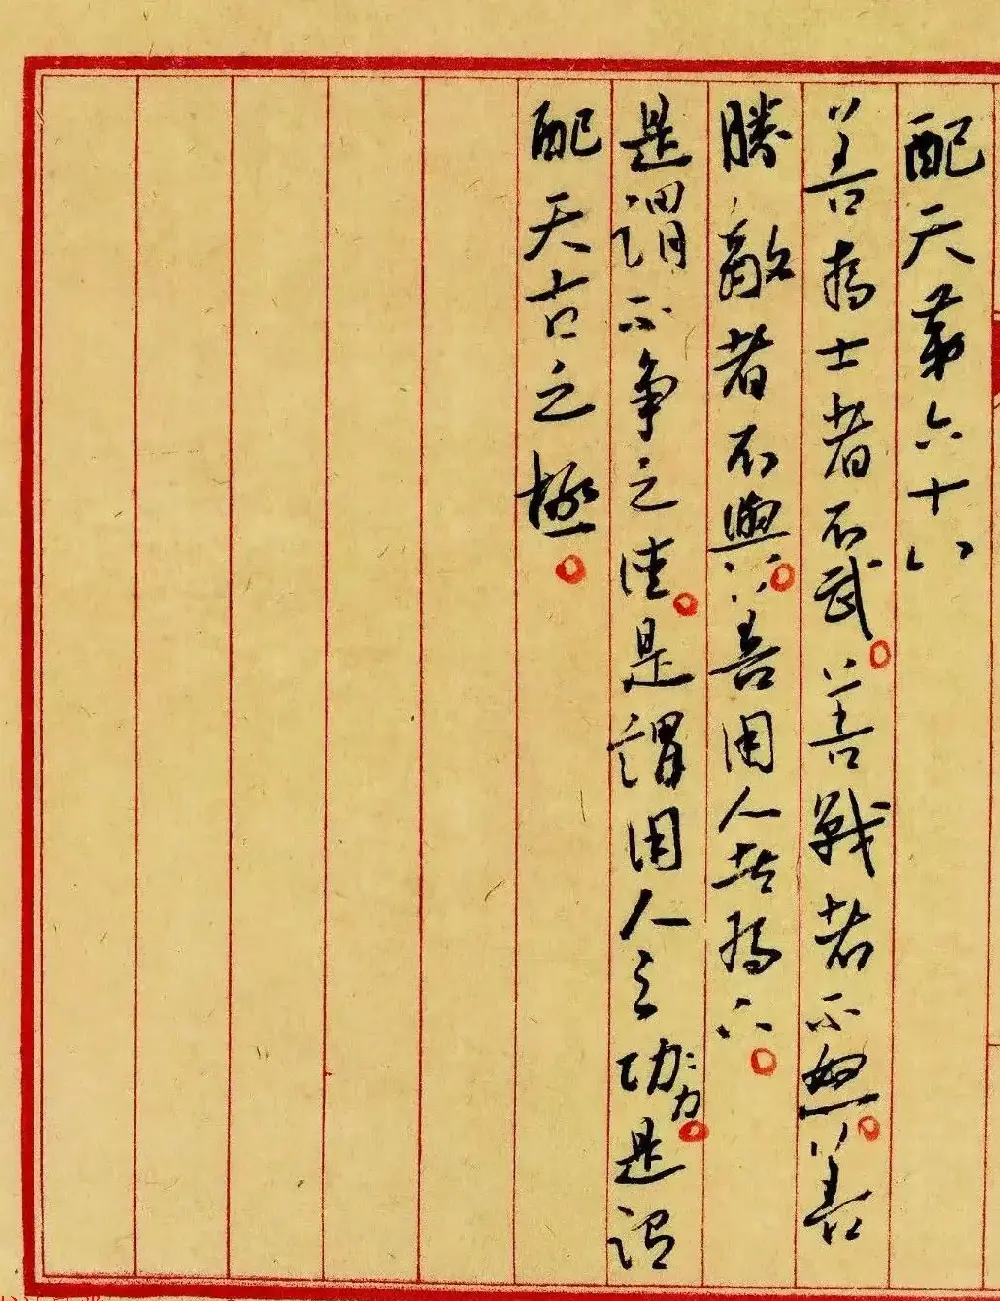 配天第六十八
善為士者不武。善戰者不怒。善
勝敵者不與。善用人者為下。
是謂不爭之德。是謂用人之功力。是謂
配天古之極。